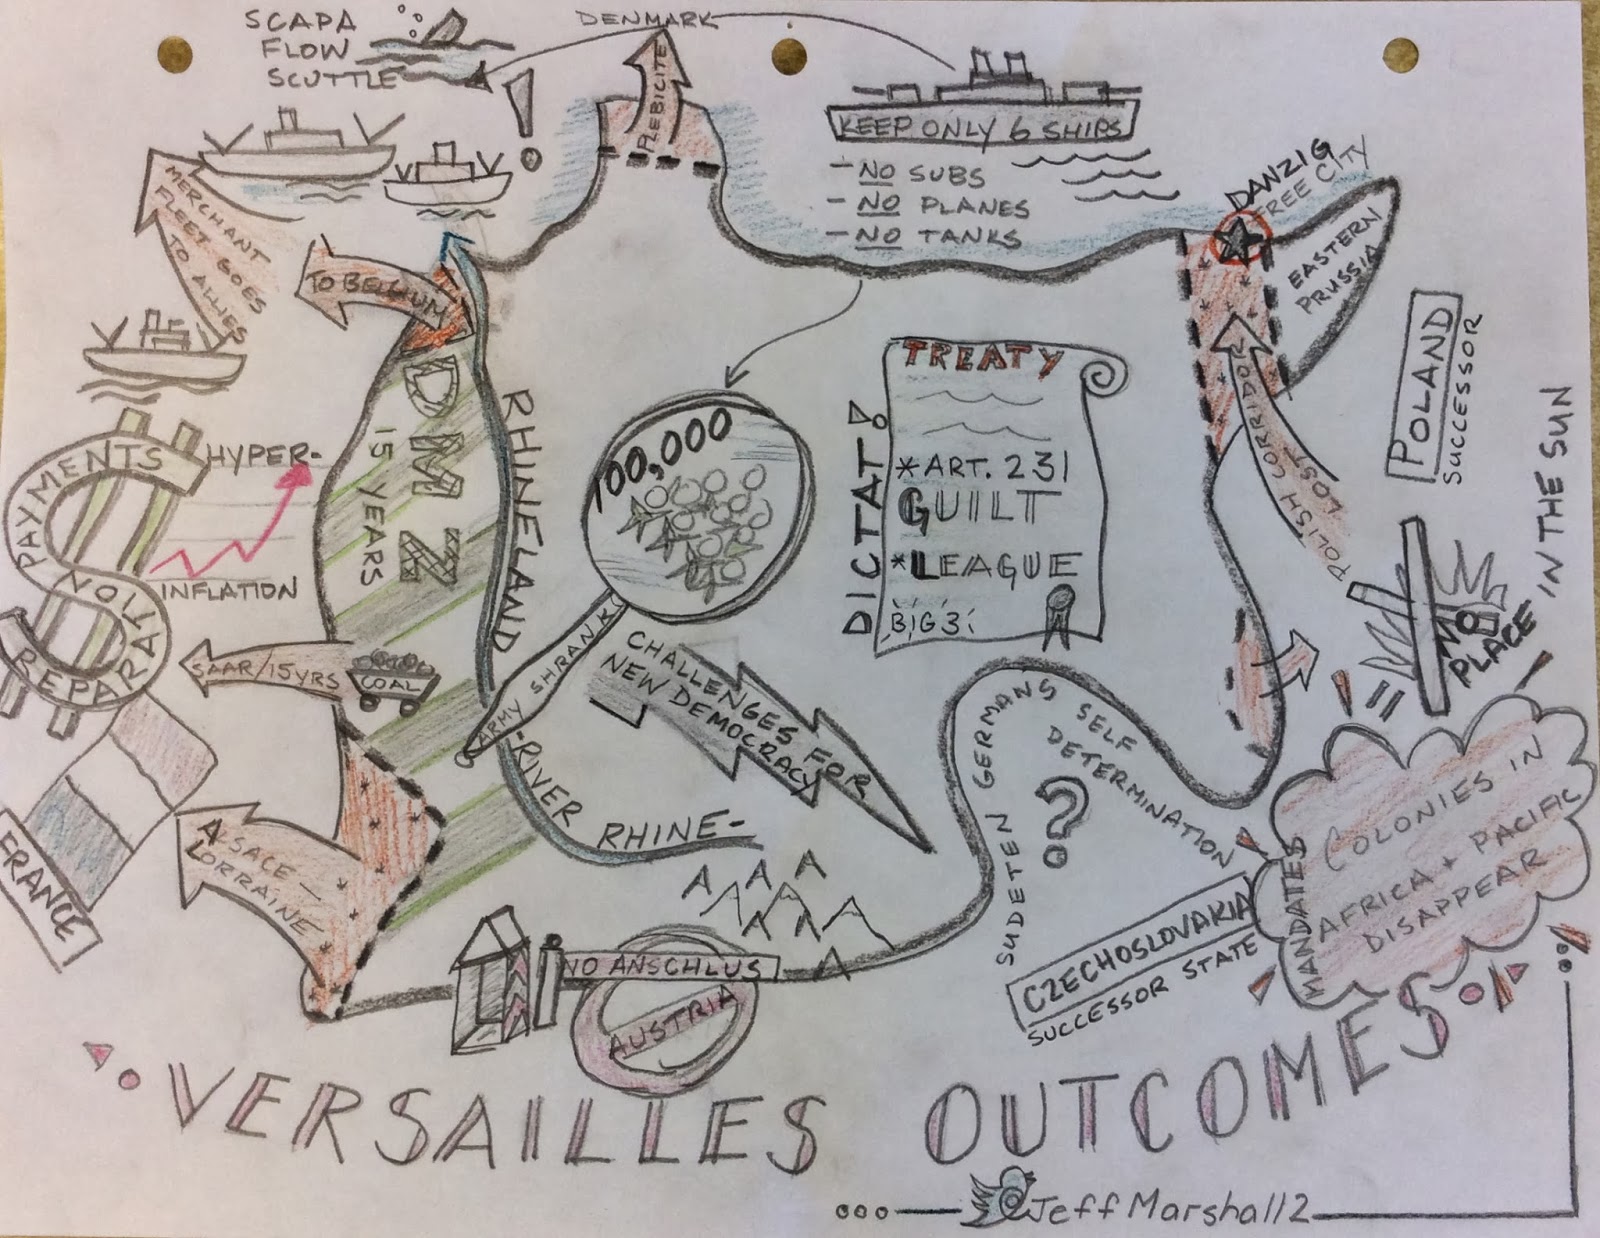 SCAPA
FLOW
SCUTTLE
DENMARK
PLEBICITE
KEEP ONLY 6 SHIPS
- NO SUBS
- NO PLANES
- NO TANKS
DANZIG
FREE CITY
EASTERN
PRUSSIA
MERCHANT
FLEET GOES
TO ALLIES
TO BELGIUM
DMZ
15 YEARS
RHINELAND
100,000
ARMY SHRANK
DICTAT!
TREATY
*ART. 231
GUILT
*LEAGUE
BIG 3
POLISH CORRIDOR
LOST
POLAND
SUCCESSOR
NO
PLACE
IN THE SUN
HYPER-
INFLATION
PAYMENTS
REPARATION
SAAR/15YRS
COAL
FRANCE
ALSACE-
LORRAINE
CHALLENGES FOR
NEW DEMOCRACY
-RIVER
RHINE-
SUDETEN GERMANS SELF
DETERMINATION
?
NO ANSCHLUS
AUSTRIA
CZECHOSLOVAKIA
SUCCESSOR STATE
MANDATES
COLONIES IN
AFRICA + PACIFIC
DISAPPEAR
VERSAILLES OUTCOMES
JeffMarshall2